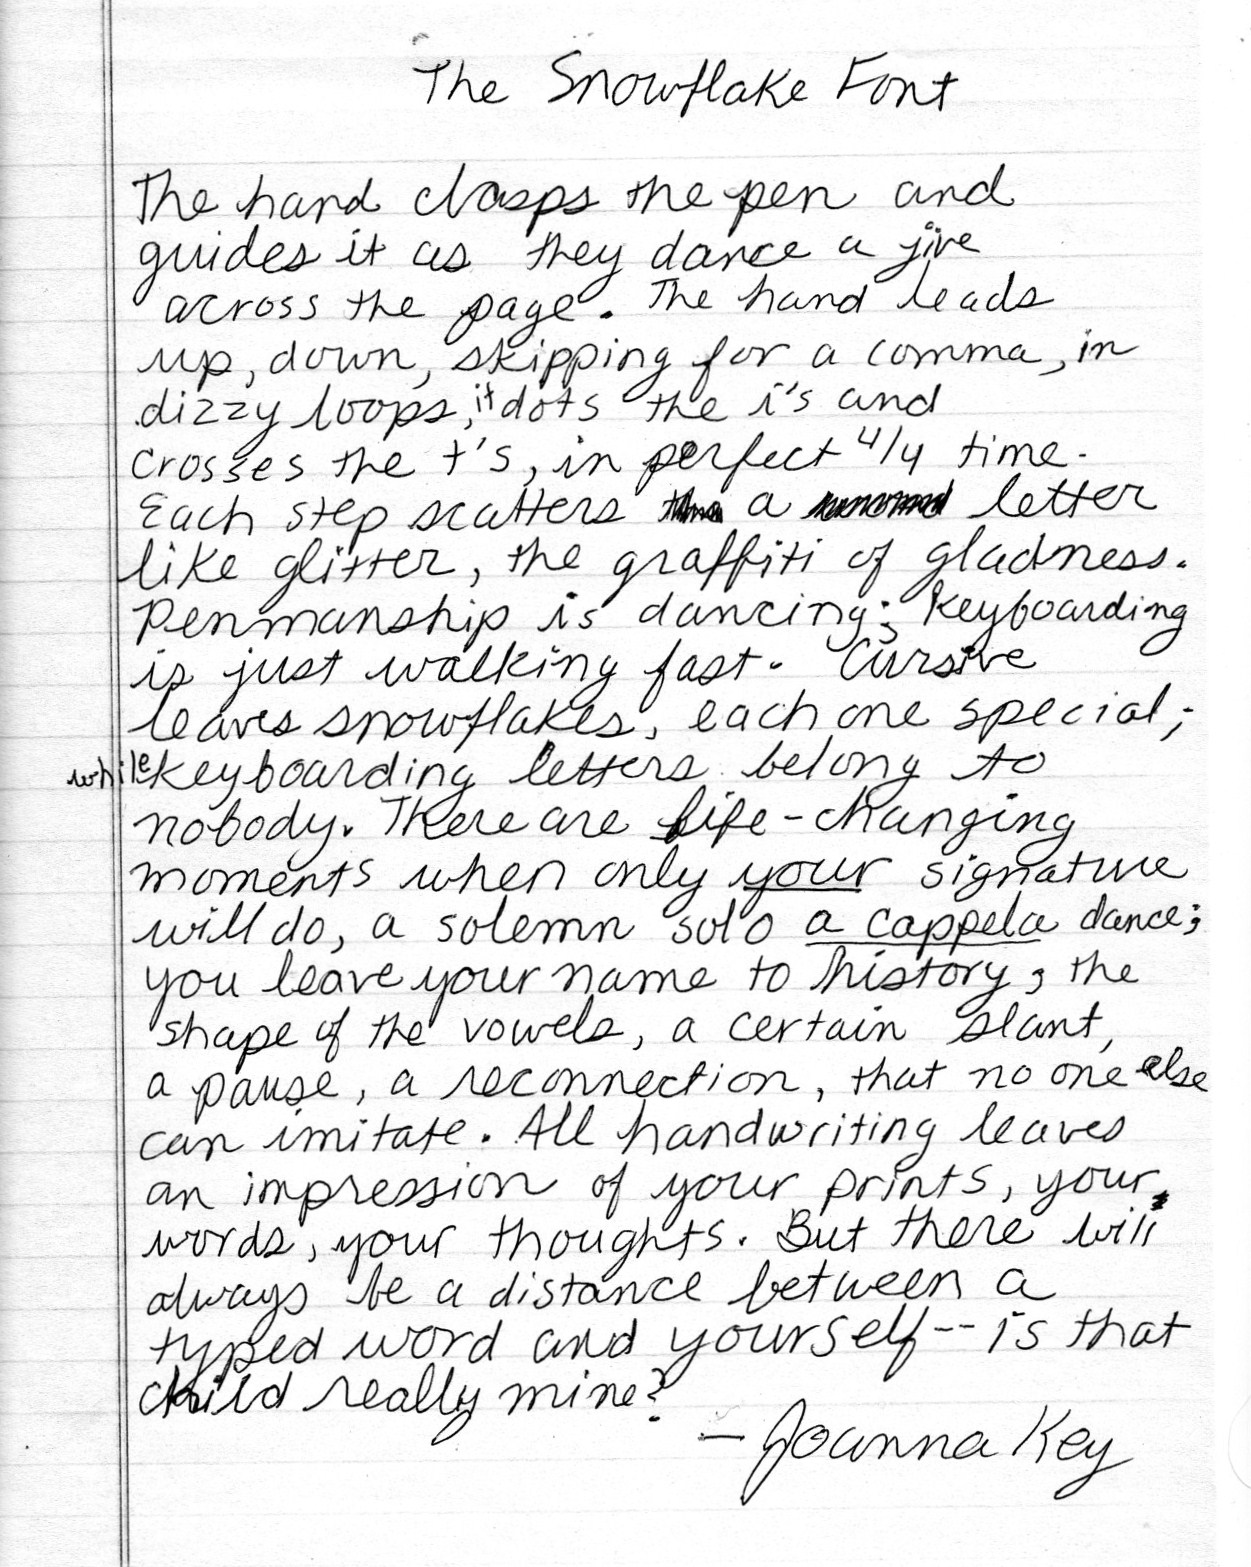 The Snowflake Font
The hand clasps the pen and
guides it as they dance a jive
across the page. The hand leads
up, down, skipping for a comma, in
dizzy loops, it dots the i's and
crosses the t's, in perfect 4/4 time.
Each step scatters a letter
like glitter, the graffiti of gladness.
Penmanship is dancing; keyboarding
is just walking fast. Cursive
leaves snowflakes, each one special,
while keyboarding letters belong to
nobody. There are life-changing
moments when only your signature
will do, a solemn solo a cappela dance;
you leave your name to history; the
shape of the vowels, a certain slant,
a pause, a reconnection, that no one else
can imitate. All handwriting leaves
an impression of your prints, your
words, your thoughts. But there will
always be a distance between a
typed word and yourself--is that
child really mine?
- Joanna Key